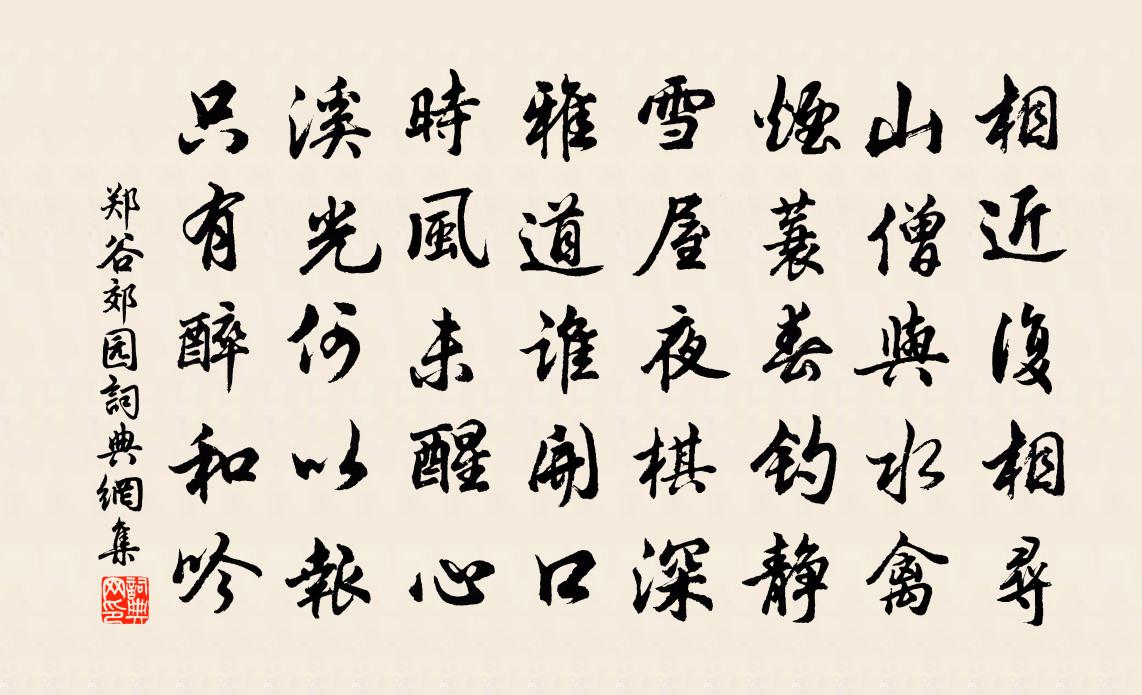 相近復相尋
山僧與水禽
煙蓑春釣静
雪屋夜棋深
雅道誰開口
時風未醒心
溪光何以報
只有醉和吟
郑谷郊园詞典網集
詞典网印